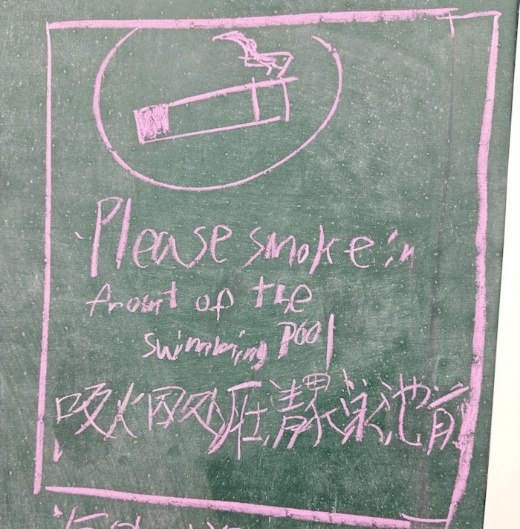 Please smoke in
front of the
swimming pool
吸火因处在請来泳池前